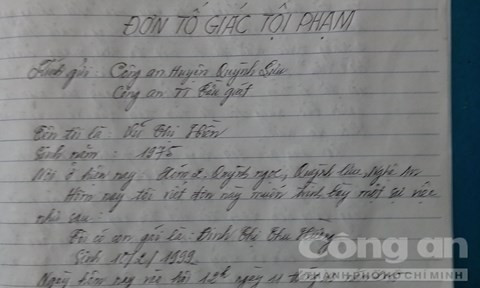 ĐƠN TỐ GIÁC TỘI PHẠM
Kính gửi : Công an Huyện Quỳnh Lưu
Công an TT Cầu Giát
Tên tôi là Vũ Thị
Sinh năm : 1975
Nơi ở hiện nay : Quỳnh Ngọc, Quỳnh Lưu, Nghệ An
Hôm nay tôi viết đơn này muốn trình bày một sự việc
như sau :
Tôi có con gái là : Đinh Thị Thu Hằng
Sinh 10/2/1999
Ngày hôm nay vào lúc 12h ngày 11 tháng
Công an
THÀNH PHỐ HỒ CHÍ MINH